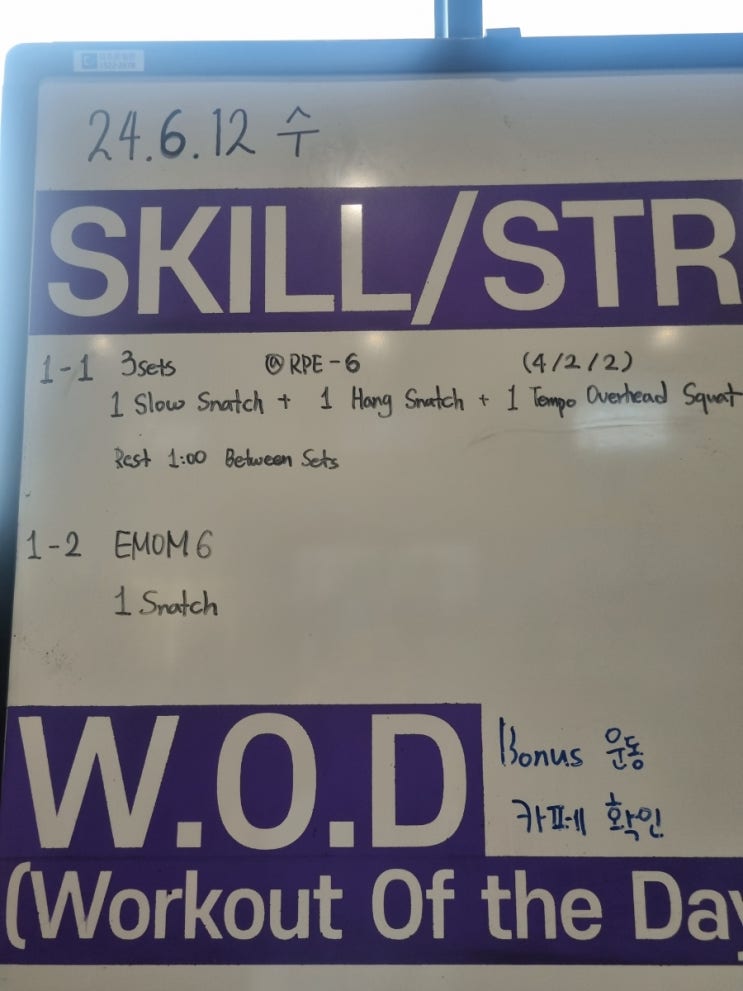 24.6.12 수
SKILL/STR
1-1 3sets @ RPE-6 (4/2/2)
1 Slow Snatch + 1 Hang Snatch + 1 Tempo Overhead Squat
Rest 1:00 Between Sets
1-2 EMOM 6
1 Snatch
W.O.D
Bonus 운동
카페 확인
(Workout Of the Day